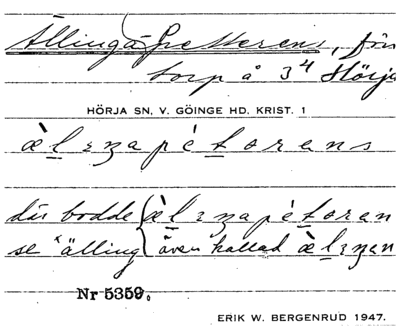 Ällingapetterens, förr
torp å 3⁴ Hörja
HÖRJA SN, V. GÖINGE HD, KRIST. 1
æ̀lɩŋapètoræns
där bodde { æ̀lɩŋapètoræn
se älling { även kallad æ̀lɩŋæn
Nr 5359.
ERIK W. BERGENRUD 1947.